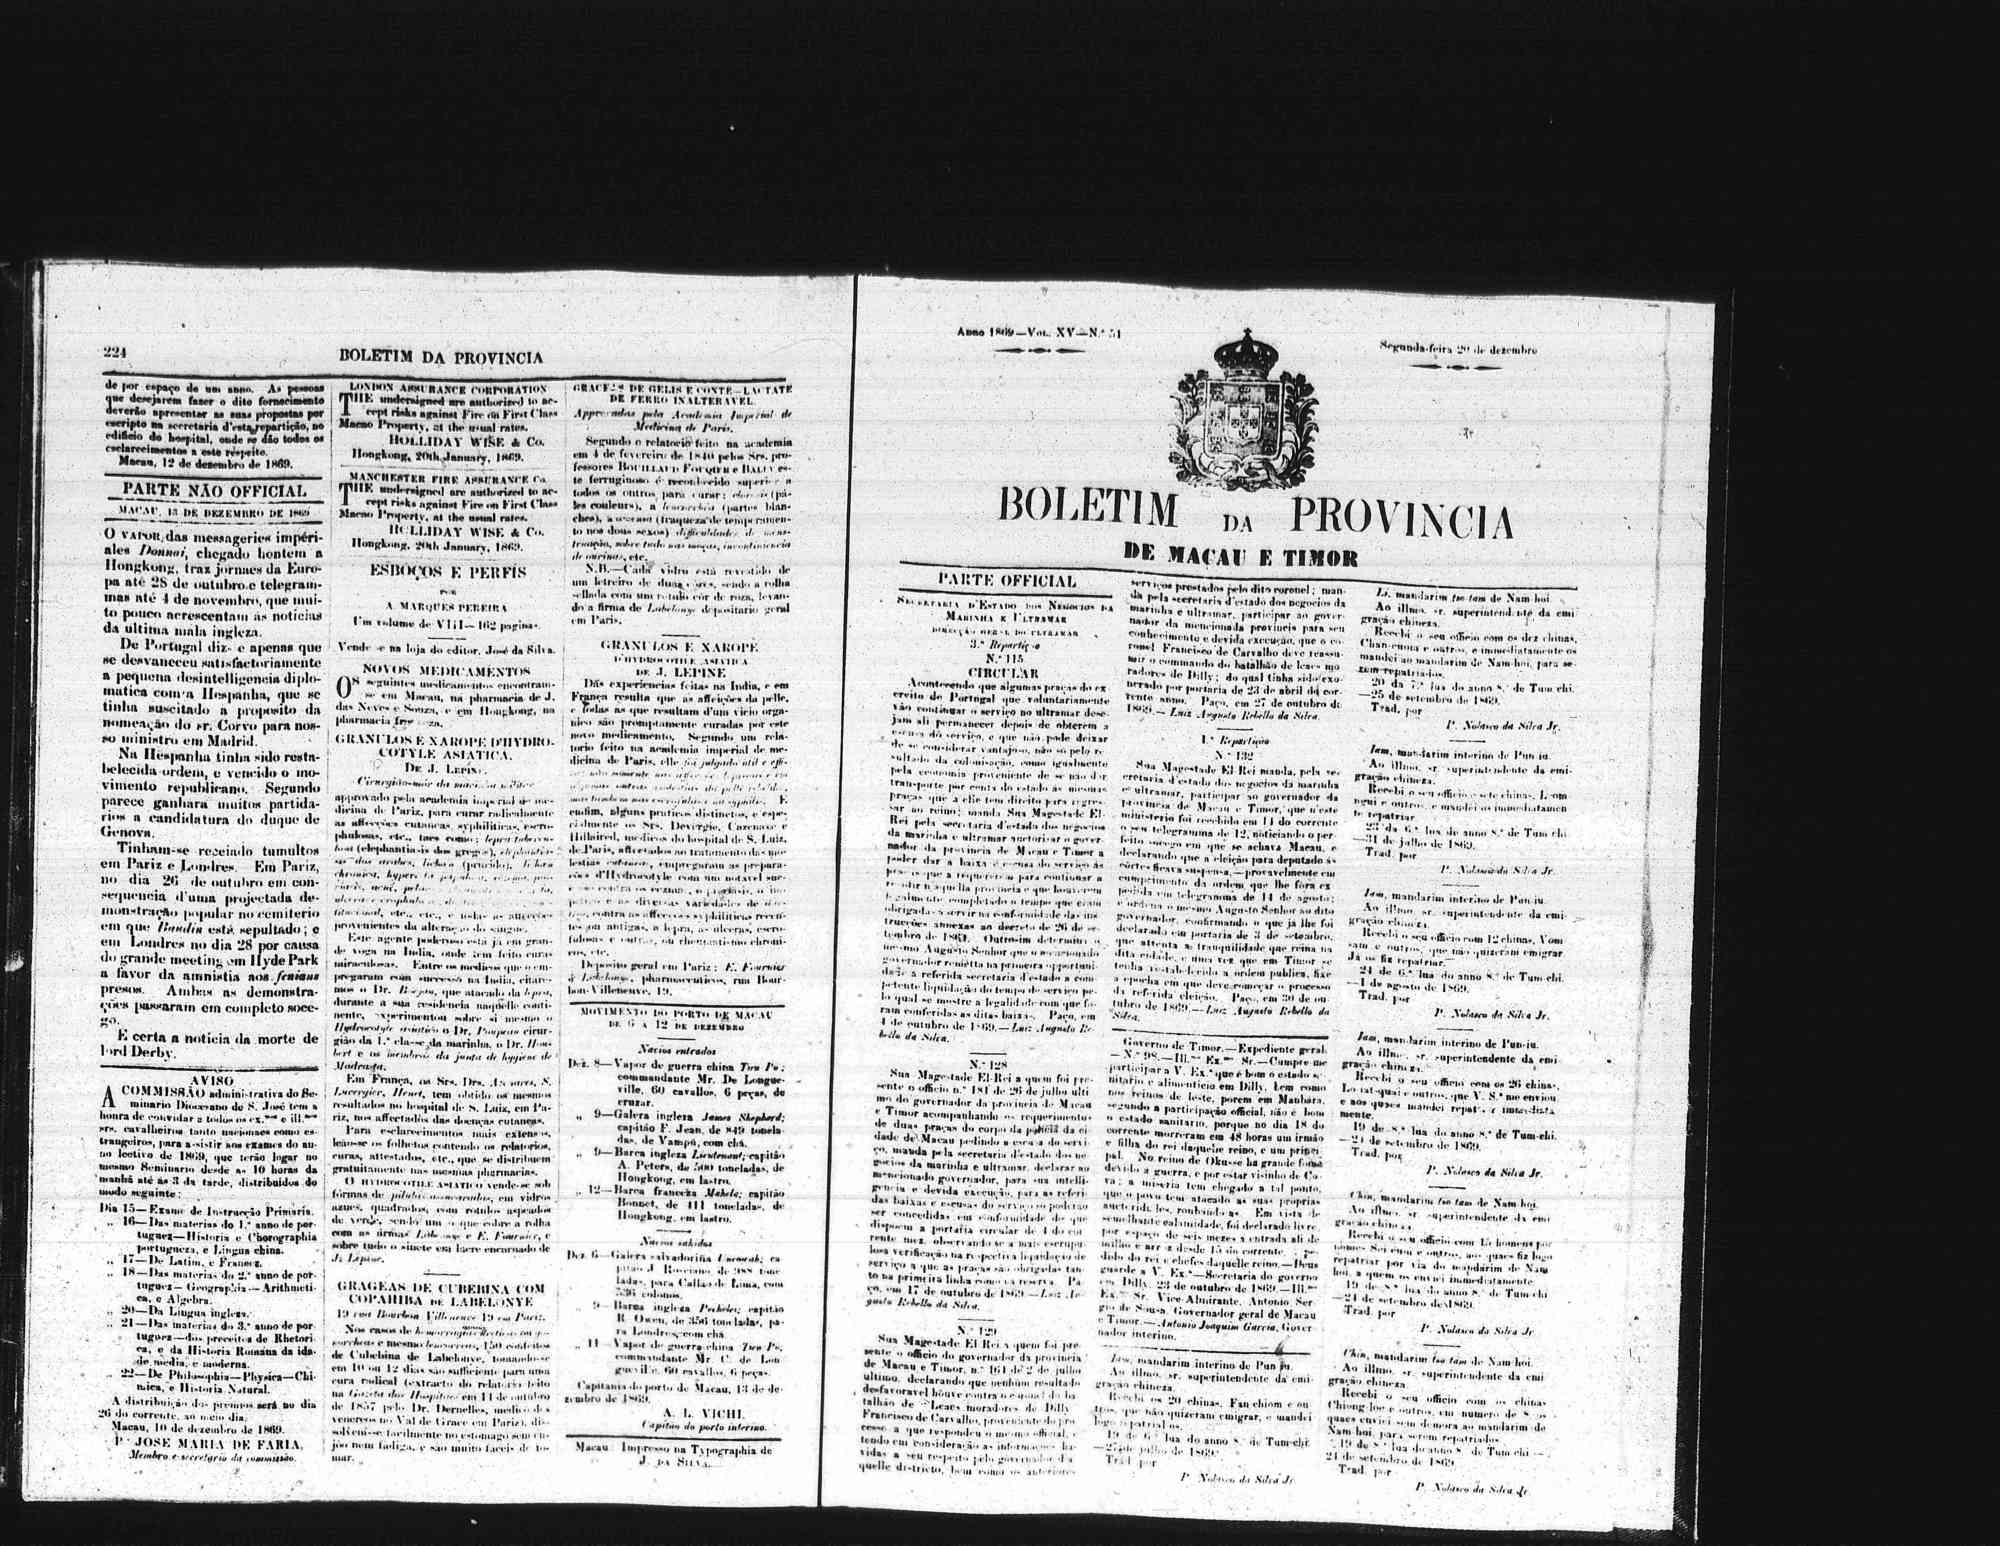 224
BOLETIM DA PROVINCIA
de por espaço de um anno. As pessoas
que desejarem fazer o dito fornecimento
deverão apresentar as suas propostas por
escripto na secretaria d'esta repartição, no
edificio do hospital, onde se dão todos os
esclarecimentos a este respeito.
Macau, 12 de dezembro de 1869.
PARTE NÃO OFFICIAL
MACAU, 13 DE DEZEMBRO DE 1869
O VAPOR das messageries impéri-
ales Donnai, chegado hontem a
Hongkong, traz jornaes da Euro-
pa até 28 de outubro e telegram-
mas até 4 de novembro, que mui-
to pouco acrescentam ás noticias
da ultima mala ingleza.
De Portugal diz-se apenas que
se desvaneceu satisfactoriamente
a pequena desintelligencia diplo-
matica com a Hespanha, que se
tinha suscitado a proposito da
nomeação do sr. Corvo para nos-
so ministro em Madrid.
Na Hespanha tinha sido resta-
belecida ordem, e vencido o mo-
vimento republicano. Segundo
parece ganhara muitos partida-
rios a candidatura do duque de
Genova.
Tinham-se receiado tumultos
em Pariz e Londres. Em Pariz,
no dia 26 de outubro em con-
sequencia d'uma projectada de-
monstração popular no cemiterio
em que Baudin está sepultado; e
em Londres no dia 28 por causa
do grande meeting em Hyde Park
a favor da amnistia aos fenians
presos. Ambas as demonstra-
ções passaram em completo soce-
go.
E certa a noticia da morte de
lord Derby.
AVISO
A COMMISSÃO administrativa do Se-
minario Diocesano de S. José tem a
honra de convidar a todos os ex.mos e ill.mos
srs. cavalheiros tanto nacionaes como es-
trangeiros, para assistir aos exames do an-
no lectivo de 1869, que terão logar no
mesmo Seminario desde as 10 horas da
manhã até ás 3 da tarde, distribuidos do
modo seguinte:
Dia 15—Exame de Instrucção Primaria.
„ 16—Das materias do 1.º anno de por-
tuguez—Historia e Chorographia
portugueza, e Lingua china.
„ 17—De Latim, e Francez.
„ 18—Das materias do 2.º anno de por-
tuguez—Geographia—Arithmeti-
ca, e Algebra.
„ 20—Da Lingua ingleza.
„ 21—Das materias do 3.º anno de por-
tuguez—dos preceitos de Rhetori-
ca, e da Historia Romana da ida-
de media, e moderna.
„ 22—De Philosophia—Physica—Chi-
mica, e Historia Natural.
A distribuição dos premios será no dia
26 do corrente, ao meio dia.
Macau, 10 de dezembro de 1869.
P.e JOSE MARIA DE FARIA,
Membro e secretario da commissão.
LONDON ASSURANCE CORPORATION
THE undersigned are authorized to ac-
cept risks against Fire on First Class
Macao Property, at the usual rates.
HOLLIDAY WISE & Co.
Hongkong, 20th January, 1869.
MANCHESTER FIRE ASSURANCE Co.
THE undersigned are authorized to ac-
cept risks against Fire on First Class
Macao Property, at the usual rates.
HOLLIDAY WISE & Co.
Hongkong, 20th January, 1869.
ESBOÇOS E PERFÍS
POR
A. MARQUES PEREIRA
Um volume de VIII—162 paginas.
Vende-se na loja do editor, José da Silva.
NOVOS MEDICAMENTOS
OS seguintes medicamentos encontram-
se em Macau, na pharmacia de J.
das Neves e Souza, e em Hongkong, na
pharmacia franceza.
GRANULOS E XAROPE D'HYDRO-
COTYLE ASIATICA,
DE J. LEPINE.
Cirurgião-mór da marinha
approvado pela academia imperial de me-
dicina de Pariz, para curar radicalmente
as affecções cutaneas, syphiliticas, escro-
phulosas, etc., taes como:
(elephantia-is dos gregos),
etc., etc., e todas as affecções
provenientes da alteração do sangue.
Este agente poderoso está já em gran-
de voga na India, onde tem feito curas
miraculosas. Entre os medicos que o em-
pregaram com successo na India, citare-
mos o Dr. Boejou, que atacado da lepra,
durante a sua residencia naquelle conti-
nente, experimentou sobre si mesmo o
Hydrocotyle asiatico o Dr. Poupeau cirur-
gião da 1.ª classe da marinha, o Dr. Hou-
bert e os membros da junta de hygiene de
Madrasta.
Em França, os Srs. Drs. S.
Lucergier, Henet, tem obtido os mesmos
resultados no hospital de S. Luiz, em Pa-
riz, nos affectados das doenças cutaneas.
Para esclarecimentos mais extensos,
leião-se os folhetos contendo os relatorios,
curas, attestados, etc., que se distribuem
gratuitamente nas mesmas pharmacias.
O HYDROCOTYLE ASIATICO vende-se sob
fórmas de pilulas assucaradas, em vidros
azues, quadrados, com rotulos aspeados
de verde, sendo um o que cobre a rolha
com as firmas Labelonye e E. Fournier, e
sobre tudo o sinete em lacre encarnado de
J. Lepine.
GRAGEAS DE CUBEBINA COM
COPAHIBA DE LABELONYE
19 rua Bourbon Villeneuve 19 em Pariz.
Nos casos de
e mesmo leucorreas, 150 confeitos
de Cubebina de Labelonye, tomando-se
em 10 ou 12 dias são sufficiente para uma
cura radical (extracto do relatorio feito
na Gazeta dos Hospitaes em 11 de outubro
de 1857 pelo Dr. Dernelles, medico dos
venereos no Val de Grace em Pariz), dis-
solvem-se facilmente no estomago sem en-
jôo nem fadiga, e são muito faceis de to-
mar.
GRAGEAS DE GELIS E CONTE—LACTATE
DE FERRO INALTERAVEL.
Approvadas pela Academia Imperial de
Medicina de Paris.
Segundo o relatorio feito na academia
em 4 de fevereiro de 1840 pelos Srs. pro-
fessores BOUILLAUD FOUQIER e BALLY es-
te ferruginoso é reconhecido superior a
todos os outros para curar: clorosis (pá-
les couleurs), a leucorrhea (partes blan-
ches), a (fraqueza de temperamen-
to nos dous sexos) difficuldades de mens-
truação, sobre tudo nas moças, incontinencia
de ourinas, etc.
N.B.—Cada vidro está revestido de
um letreiro de duas cores, sendo a rolha
sellada com um rotulo côr de roza, levan-
do a firma de Labelonye depositario geral
em Paris.
GRANULOS E XAROPE
D'HYDROCOTILE ASIATICA
DE J. LEPINE
Dás experiencias feitas na India, e em
França resulta que as affeições da pelle,
e todas as que resultam d'um vicio orga-
nico são promptamente curadas por este
novo medicamento. Segundo um rela-
torio feito na academia imperial de me-
dicina de Paris, elle foi julgado util e
E.
emfim, alguns praticos distinctos, e espe-
cialmente os Srs. Devergie, Cazenave e
Hillaired, medicos do hospital de S. Luiz,
de Paris, affectados ao tratamento das mo-
lestias cutaneas, empregaram as prepara-
ções d'Hydrocotyle com um notavel suc-
cesso contra os eczema, o psoriasis, o im-
petigo e as diversas variedades de
contra as affecções syphiliticas recen-
tes ou antigas, a lepra, as ulceras, escro-
fulosas e outras, ou rheumatismo chroni-
cos, etc.
Deposito geral em Pariz: E. Fournier
& Labelonye, pharmaceuticos, rua Bour-
bon-Villeneuve, 19.
MOVIMENTO DO PORTO DE MACAU
DE 6 A 12 DE DEZEMBRO
Navios entrados
Dez. 8—Vapor de guerra china Tien Po;
commandante Mr. De Longue-
ville, 60 cavallos, 6 peças, de
cruzar.
„ 9—Galera ingleza James Shepherd;
capitão F. Jean, de 849 tonela-
das, de Vampú, com chá.
„ 9—Barca ingleza Lieutenant; capitão
A. Peters, de 500 toneladas, de
Hongkong, em lastro.
„ 12—Barca franceza Mahela; capitão
Bonnet, de 411 toneladas, de
Hongkong, em lastro.
Navios sahidos
Dez. 6—Galera salvadoriña Uncowah; ca-
pitão J. Rosciano, de 988 tone-
ladas, para Callao de Lima, com
536 colonos.
„ 9—Barca ingleza Pecheles; capitão
R. Owen, de 356 toneladas, pa-
ra Londres, com chá.
„ 11—Vapor de guerra china Tien Po,
commandante Mr. C. de Lon-
gueville, 60 cavallos, 6 peças.
Capitania do porto de Macau, 13 de de-
zembro de 1869.
A. L. VICHI,
Capitão do porto interino.
Macau: Impresso na Typographia de
J. DA SILVA.
Anno 1869—VOL. XV—N.º 51
Segunda-feira 20 de dezembro
BOLETIM DA PROVINCIA
DE MACAU E TIMOR
PARTE OFFICIAL
SECRETARIA D'ESTADO DOS NEGOCIOS DA
MARINHA E ULTRAMAR
DIRECÇÃO GERAL DO ULTRAMAR
3.ª Repartição
N.º 115
CIRCULAR
Acontecendo que algumas praças do ex-
ercito de Portugal que voluntariamente
vão continuar o serviço no ultramar dese-
jam ali permanecer depois de obterem a
escusa do serviço, e que não pode deixar
de se considerar vantajoso, não só pelo re-
sultado da colonisação, como igualmente
pela economia proveniente de se não dar
transporte por conta do estado ás mesmas
praças que a elle tem direito para regres-
sar ao reino; manda Sua Magestade El-
Rei pela secretaria d'estado dos negocios
da marinha e ultramar auctorisar o gover-
nador da provincia de Macau e Timor a
poder dar a baixa e escusa do serviço ás
praças que a requererem para continuar a
residir n'aquella provincia e que houverem
legalmente completado o tempo que eram
obrigadas a servir na conformidade das ins-
trucções annexas ao decreto de 26 de se-
tembro de 1863. Outro-sim determina o
mesmo Augusto Senhor que o mencionado
governador remetta na primeira opportuni-
dade á referida secretaria d'estado a com-
petente liquidação do tempo de serviço pe-
lo qual se mostre a legalidade com que fo-
ram conferidas as ditas baixas. Paço, em
4 de outubro de 1869.—Luiz Augusto Re-
bello da Silva.
N.º 128
Sua Magestade El-Rei a quem foi pre-
sente o officio n.º 181 de 26 de julho ulti-
mo do governador da provincia de Macau
e Timor acompanhando os requerimentos
de duas praças do corpo da policia da ci-
dade de Macau pedindo a escusa do servi-
ço, manda pela secretaria d'estado dos ne-
gocios da marinha e ultramar, declarar ao
mencionado governador, para sua intelli-
gencia e devida execução, para as referi-
das baixas e escusas do serviço só poderão
ser concedidas em conformidade do que
dispoem a portaria circular de 4 do cor-
rente mez, observando-se a mais escrupu-
losa verificação na respectiva liquidação de
serviço a que as praças são obrigadas tan-
to na primeira linha como na reserva. Pa-
ço, em 17 de outubro de 1869.—Luiz Au-
gusto Rebello da Silva.
N.º 129
Sua Magestade El-Rei a quem foi pre-
sente o officio do governador da provincia
de Macau e Timor, n.º 161 de 2 de julho
ultimo, declarando que nenhum resultado
desfavoravel houve contra o coronel do ba-
talhão de Leaes moradores de Dilly
Francisco de Carvalho, proveniente do pro-
cesso a que respondeu o mesmo official, e
tendo em consideração as informações ha-
vidas a seu respeito pelo governador d'a-
quelle districto, bem como os anteriores
serviços prestados pelo dito coronel; man-
da pela secretaria d'estado dos negocios da
marinha e ultramar, participar ao gover-
nador da mencionada provincia para seu
conhecimento e devida execução, que o co-
ronel Francisco de Carvalho deve reassu-
mir o commando do batalhão de leaes mo-
radores de Dilly; do qual tinha sido exo-
nerado por portaria de 23 de abril do cor-
rente anno. Paço, em 27 de outubro de
1869.—Luiz Augusto Rebello da Silva.
1.ª Repartição
N.º 132
Sua Magestade El-Rei manda, pela se-
cretaria d'estado dos negocios da marinha
e ultramar, participar ao governador da
provincia de Macau e Timor, que n'este
ministerio foi recebido em 14 do corrente
o seu telegramma de 12, noticiando o per-
feito socego em que se achava Macau, e
declarando que a eleição para deputado ás
côrtes ficava suspensa,—provavelmente em
cumprimento da ordem que lhe fôra ex-
pedida em telegramma de 14 de agosto;
e ordena o mesmo Augusto Senhor ao dito
governador, confirmando o que já lhe foi
declarado em portaria de 3 de setembro,
que attenta a tranquilidade que reina na
dita cidade, e uma vez que em Timor se
tenha restabelecido a ordem publica, fixe
a epocha em que deve começar o processo
da referida eleição. Paço, em 30 de ou-
tubro de 1869.—Luiz Augusto Rebello da
Silva.
Governo de Timor.—Expediente geral.
—N.º 98.—Ill.mo Ex.mo Sr.—Cumpre-me
participar a V. Ex.ª que é bom o estado sa-
nitario e alimenticio em Dilly, bem como
nos reinos de leste, porem em Manbara,
segundo a participação official, não é bom
o estado sanitario, porque no dia 18 do
corrente morreram em 48 horas um irmão
e filha do rei daquelle reino, e um princi-
pal. No reino de Okusse ha grande fome
devido a guerra, e por estar visinho de Co-
va; a miseria tem chegado a tal ponto,
que o povo tem atacado as suas proprias
aucteridades, roubando-as. Em vista de
semelhante calamidade, foi declarado livre,
por espaço de seis mezes a entrada ali de
milho e arroz desde 15 do corrente, a pe-
dido do rei e chefes daquelle reino.—Deus
guarde a V. Ex.ª—Secretaria do governo
em Dilly, 23 de outubro de 1869.—Ill.mo
Ex.mo Sr. Vice-Almirante, Antonio Ser-
gio de Sousa, Governador geral de Macau
e Timor.—Antonio Joaquim Garcia, Gover-
nador interino.
Iam, mandarim interino de Pun-iu.
Ao illmo. sr. superintendente da emi-
gração chineza.
Recebi os 20 chinas, Fan-chiom e ou-
tros, que não quizeram emigrar, e mandei
logo repatrial-os.
19 de 6.ª lua do anno 8.º de Tum-chi.
—27 de julho de 1869.
Trad. por
P. Nolasco da Silva Jr.
Li, mandarim tso-tam de Nam-hoi.
Ao illmo. sr. superintendente da emi-
gração chineza.
Recebi o seu officio com os dez chinas,
Chan-cuona e outros, e immediatamente os
mandei ao mandarim de Nam-hoi, para se-
rem repatriados.
20 da 7.ª lua do anno 8.º de Tum-chi.
—25 de setembro de 1869.
Trad. por
P. Nolasco da Silva Jr.
Iam, mandarim interino de Pun-iu.
Ao illmo. sr. superintendente da emi-
gração chineza.
Recebi o seu officio e sete chinas, L-om
ngui e outros, e mandei os immediatamen-
te repatriar.
23 da 6.ª lua do anno 8.º de Tum-chi
—31 de julho de 1869.
Trad. por
P. Nolasco da Silva Jr.
Iam, mandarim interino de Pun-iu.
Ao illmo. sr. superintendente da emi-
gração chineza.
Recebi o seu officio com 12 chinas, Vom
sam e outros, que não quizeram emigrar.
Já os fiz repatriar.
24 de 6.ª lua do anno 8.º de Tum-chi.
—1 de agosto de 1869.
Trad. por
P. Nolasco da Silva Jr.
Iam, mandarim interino de Pun-iu.
Ao illmo. sr. superintendente da emi-
gração chineza.
Recebi o seu officio com os 26 chinas,
Lo-iat-quai e outros, que V. S.ª me enviou
e aos quaes mandei repatriar immediata-
mente.
19 de 8.ª lua do anno 8.º de Tum-chi.
—24 de setembro de 1869.
Trad. por
P. Nolasco da Silva Jr.
Chin, mandarim tso-tam de Nam-hoi.
Ao illmo. sr. superintendente da emi-
gração chineza.
Recebi o seu officio com 15 homens por
nomes Sei-cuu e outros, aos quaes fiz logo
repatriar por via do mandarim de Nam
hoi, a quem os enviei immediatamente
19 de 8.ª lua do anno 8.º de Tum-chi
—24 de setembro de 1869.
Trad. por
P. Nolasco da Silva Jr.
Chin, mandarim tso-tam de Nam-hoi.
Ao illmo. sr. superintendente da emi-
gração chineza.
Recebi o seu officio com os chinas
Chiong-loc e outros, em numero de 8 os
quaes enviei sem demora ao mandarim de
Nam-hoi, para serem repatriados.
19 de 8.ª lua do anno 8.º de Tum-chi—
24 de setembro de 1869.
Trad. por
P. Nolasco da Silva Jr.